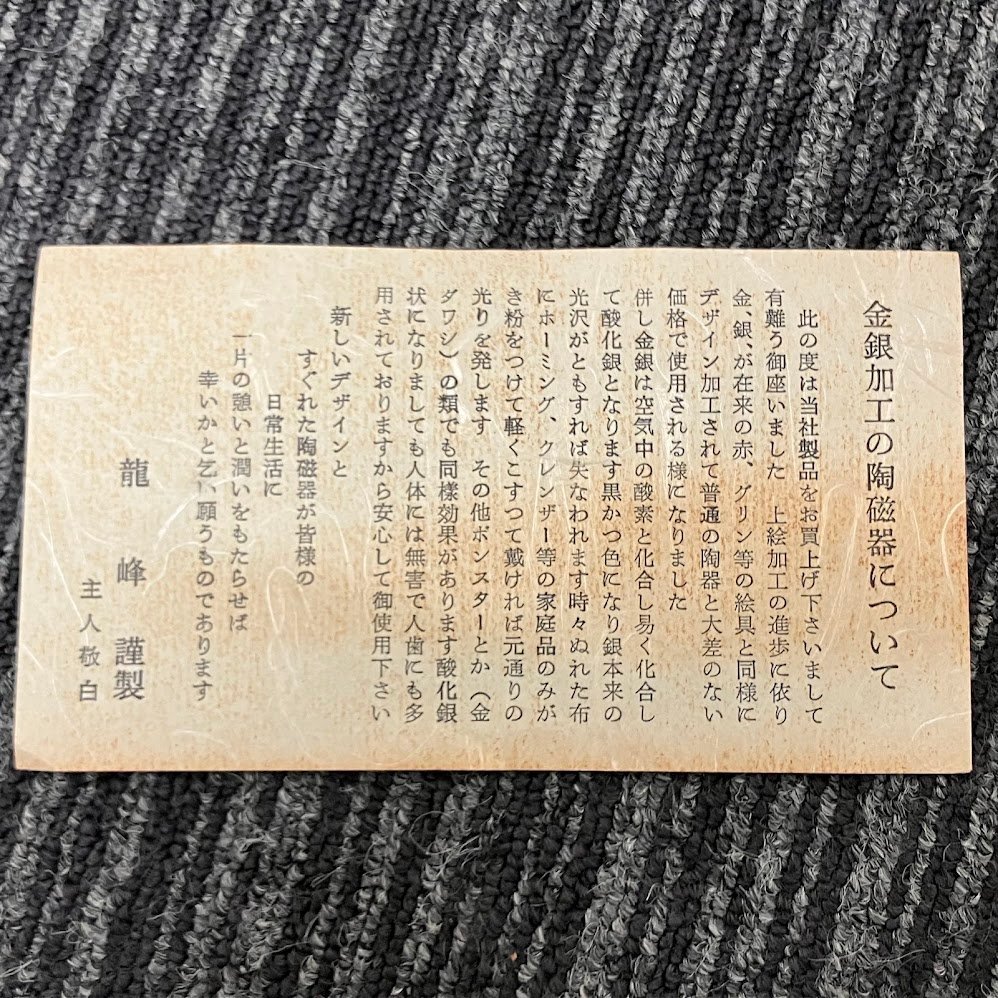 金銀加工の陶磁器について
此の度は当社製品をお買上げ下さいまして
有難う御座いました　上絵加工の進歩に依り
金、銀、が在来の赤、グリン等の絵具と同様に
デザイン加工されて普通の陶器と大差のない
価格で使用される様になりました
併し金銀は空気中の酸素と化合し易く化合し
て酸化銀となります黒かつ色になり銀本来の
光沢がともすれば失なわれます時々ぬれた布
にホーミング、クレンザー等の家庭品のみが
き粉をつけて軽くこすつて戴ければ元通りの
光りを発します　その他ボンスターとか（金
ダワシ）の類でも同様効果があります酸化銀
状になりましても人体には無害で人歯にも多
用されておりますから安心して御使用下さい
新しいデザインと
すぐれた陶磁器が皆様の
日常生活に
一片の憩いと潤いをもたらせば
幸いかと乞い願うものであります
龍峰謹製
主人敬白